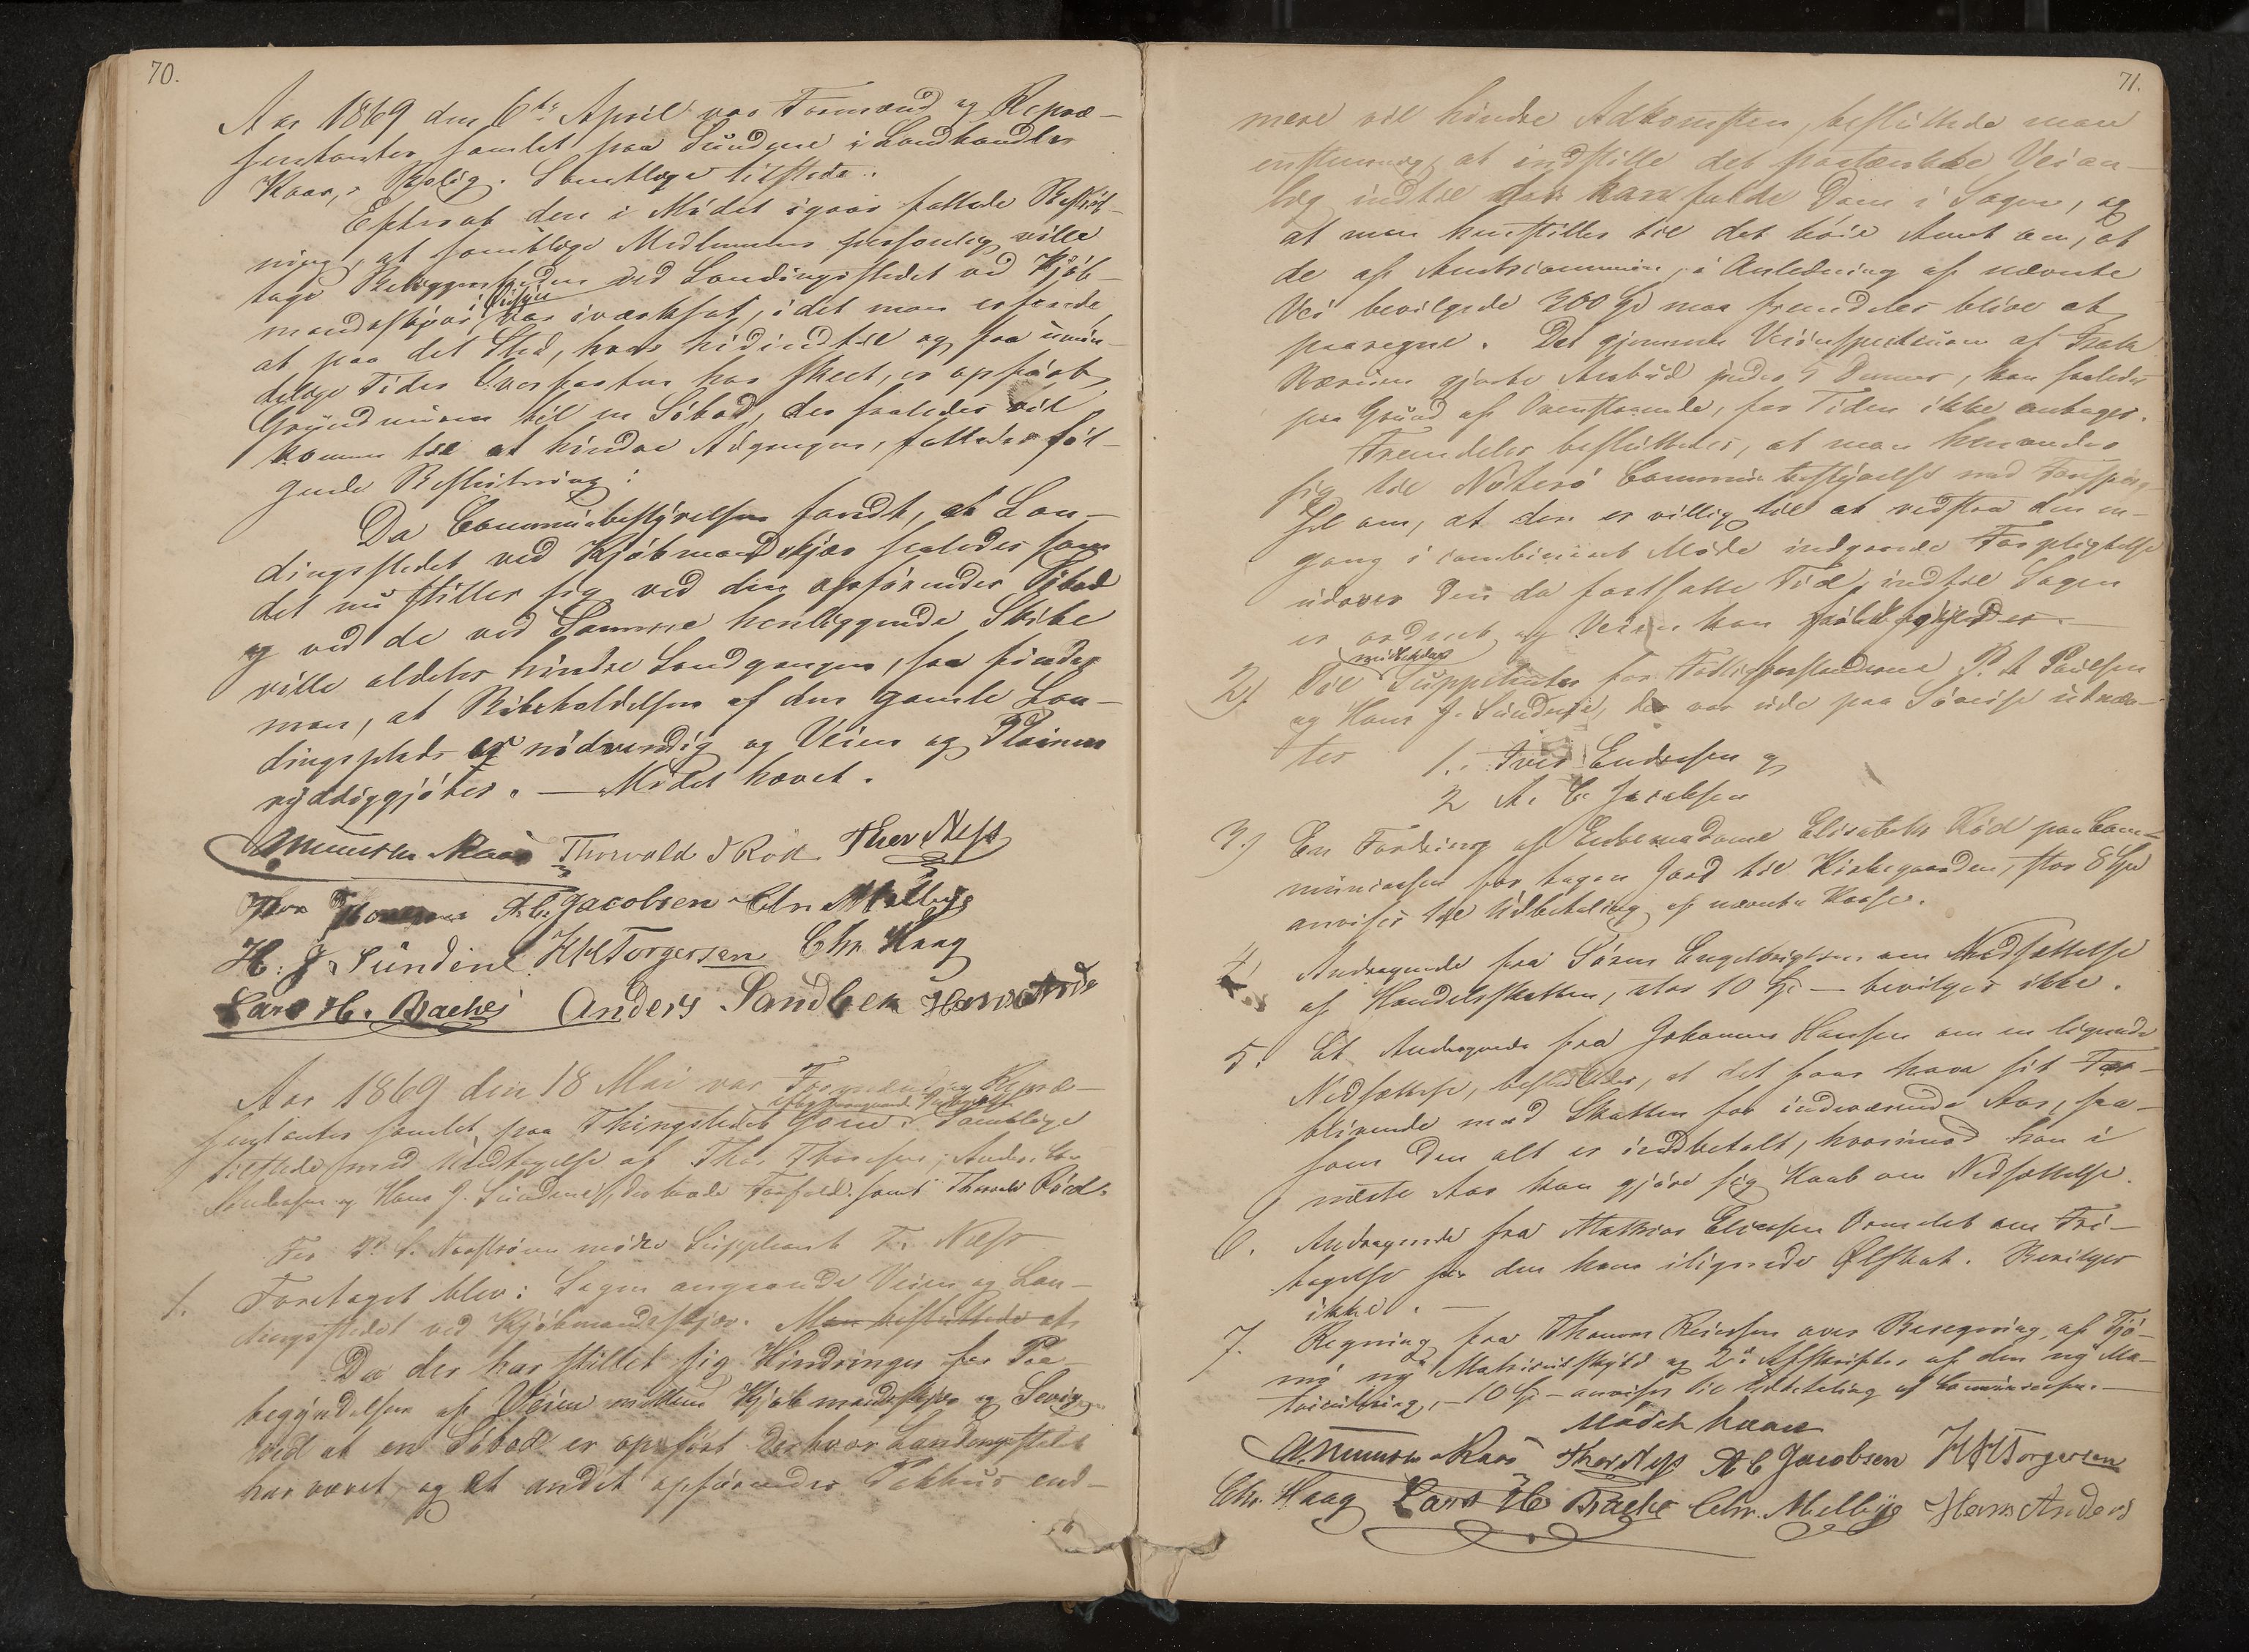 70.
Aar 1869 den 6te April var Formænd og Repræ-
sentanter samlet paa Sundene i Landhandler
Kaas's Bolig. Samtlige tilstede.
Efterat den i Mødet igaar fattede Beslut-
ning, at samtlige Medlemmer personlig ville
tage Beliggenheden ved Landingsstedet ved Kjøb-
mandsskjær i Øiesyn var iværksat, idet man erfarede,
at paa det Sted, hvor hidindtil og fra umin-
delige Tider Overfarten har skeet, er opført
Grundmuren til en Søbod, der saaledes vil
komme til at hindre Adgangen, fattedes føl-
gende Beslutning:
Da Communebestyrelsen fandt, at Lan-
dingsstedet ved Kjøbmandskjær saaledes som
det nu stiller sig ved den opførendes Søbod
og ved de ved Samme henliggende Skibe
ville aldeles hindre Landgangen, saa finder
man, at Bibeholdelsen af den gamle Lan-
dingsplads er nødvendig og Veien og Pladsen
ryddiggjøres. — Mødet hævet.
Amunsen Kaas Thorvald S Röd Thor Næss
Thor Thoresen A. C. Jacobsen Chr. Melbÿe
H: J. Sundene H H Torgersen Chr. Haag
Lars H. Bache Anders Sandbek Hans Anders
Aar 1869 den 18 Mai var Formænd og Repræ-
sentanter samlet efter foregaaende paa Thingstedet Gorm. Samtlige
tilstede med Undtagelse af Thor Thoresen, Anders
og Hans J. Sundene, der havde Forfald samt Thorvald Röd.
For mødte Suppleant T. Næss
1. Foretaget blev: Sagen angaaende Veien og Lan-
dingsstedet ved Kjøbmandsskjær. Man besluttede at
Da der har stillet sig Hindringer for Paa-
begyndelsen af Veien mellem Kjøbmandsskjær og
ved at en Søbod er opført derhvor Landingsstedet
har været og et andet opførendes Pakhus end-
71.
mere vil hindre Adkomsten, besluttede man
enstemmig, at indstille det paatænkte Veian-
læg indtil der kan falde Dom i Sagen, og
at man henstiller til det høie Amt om, at
de af Amtscommunen, i Anledning af nævnte
Vei bevilgede 300 Spd maa fremdeles blive at
paaregne. Det gjennem Veiinspecteuren af Isak
gjorte Anbud kan saaledes
paa Grund af Ovenstaaende, for Tiden ikke antages.
Fremdeles besluttedes, at man henvender
sig til Nøterø Communebestyrelse med Forespørg-
sel om, at den er villig til at vedstaa den en-
gang i combineret Møde indgaaede Forpligtelse
udover den da fastsatte Tid, indtil Sagen
er ordnet og Veien kan
2). Til midlertidige Suppleanter for Fattigforstanderne P. A Paulsen
og Hans J. Sundene, der var ude paa Søreise udnævn-
tes 1. Iver Endresen og
2 A. C. Jacobsen
3.) En Fordring af Enkemadame Elisabeth Röd paa Com-
munecassen for tagen Jord til Kirkegaarden, stor 8 Spd
anvises til Udbetaling af nævnte Kasse.
4) Andragende fra Søren Engebrigtsen om Nedsættelse
af Handelsskatten, stor 10 Spd — bevilges ikke.
5. Et Andragende fra Johannes Hansen om en lignende
Nedsættelse, besluttedes, at det faar have sit For-
blivende med Skatten for indeværende Aar, saa-
som den alt er indbetalt, hvorimod han i
næste Aar kan gjøre sig Haab om Nedsættelse.
6. Andragende fra Mathias Eliassen om Fri-
tagelse for den ham ilignede Ølskat. Bevilges
ikke. —
7. Regning fra Thomas over Beregning af Tjø-
mø ny Matrikulskyld og 2de Afskrifter af den ny Ma-
triculering, — 10 Spd — anvises til Udbetaling af Communecassen. —
Mødet hævet
Amunsen Kaas Thor Næss A C Jacobsen H H Torgersen
Chr. Haag Lars H Bache Chr. Melbÿe Hans Anders